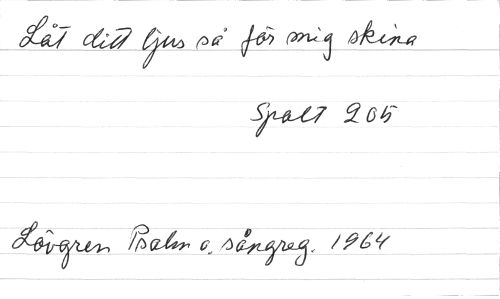 Låt ditt ljus så för mig skina
Spalt 205
Lövgren Psalm o. sångreg. 1964